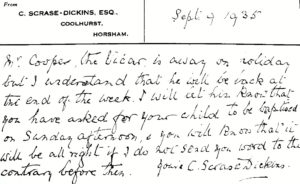 From
C. SCRASE-DICKINS, ESQ.,
COOLHURST,
HORSHAM.
Sept 9 1935
Mr. Cooper, the Vicar is away on holiday
but I understand that he will be back at
the end of the week. I will let him know that
you have asked for your child to be baptised
on Sunday afternoon, & you will know that it
will be all right if I do not send you word to the
contrary before then. Yours C. Scrase Dickins.